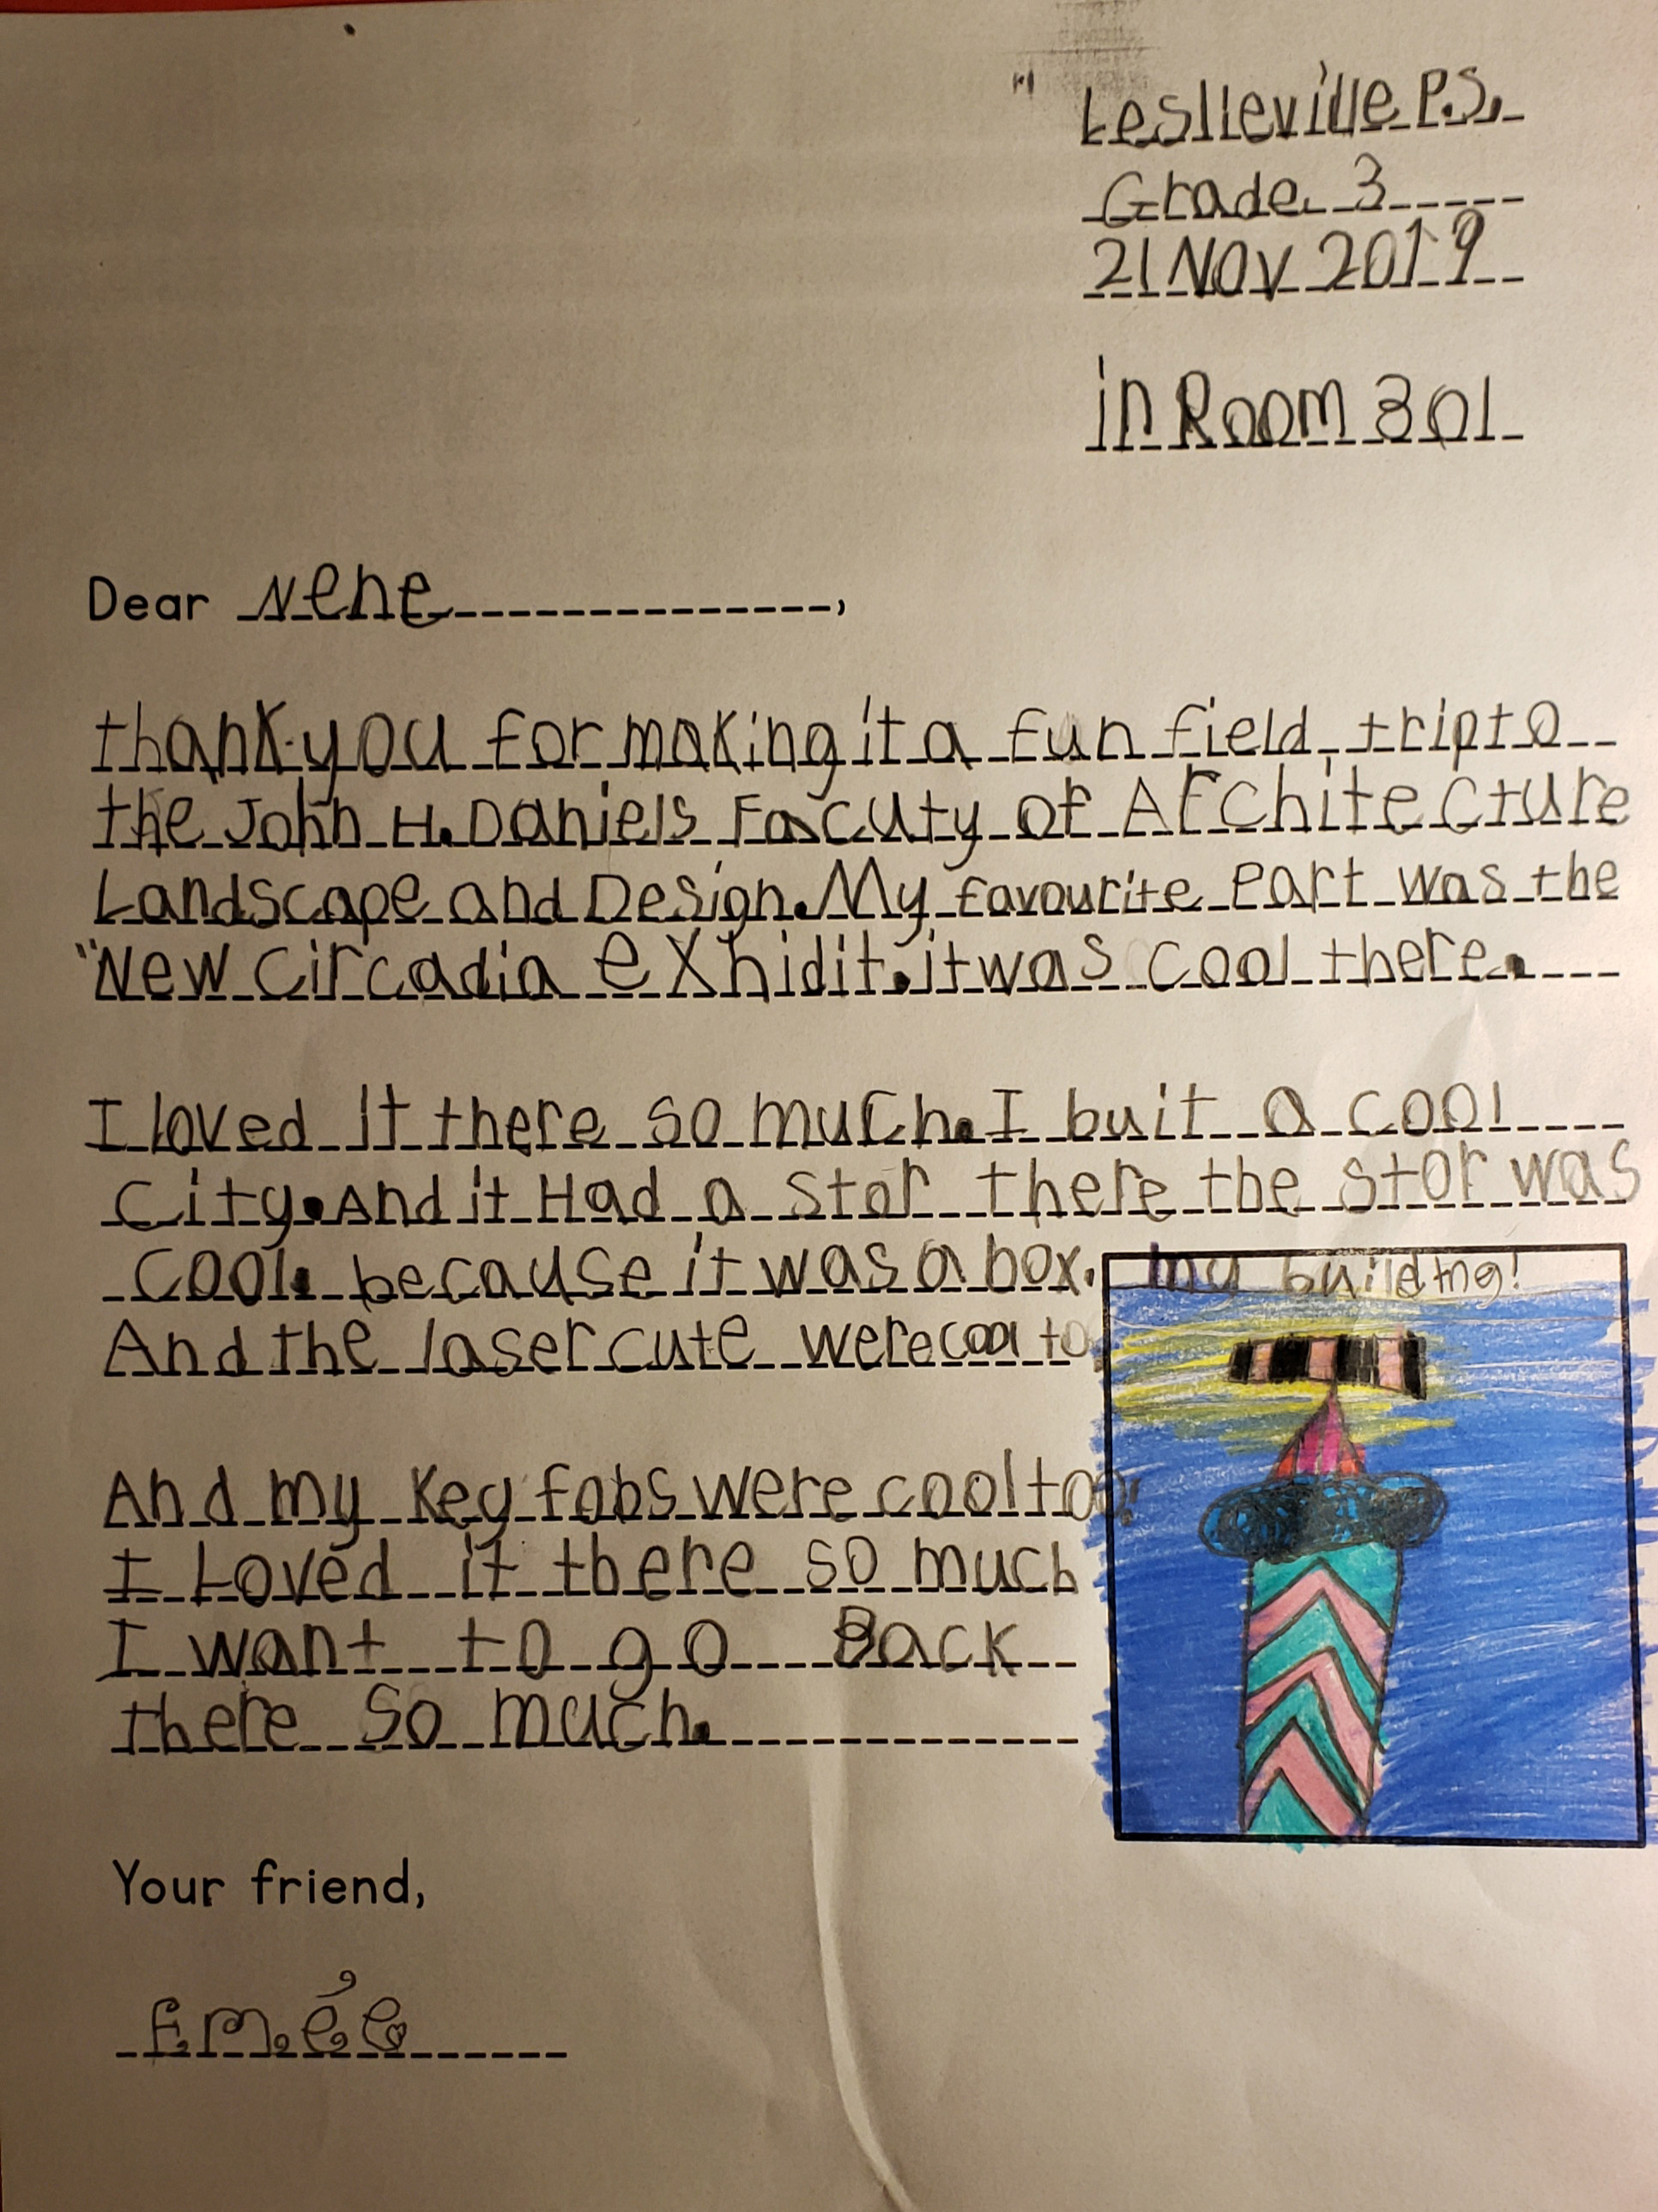 Leslieville P.S.
Grade 3
21 Nov 2019
in Room 301
Dear Nene,
thank you for making it a fun field trip to
the John H. Daniels Facuty of Architecture
Landscape and Design. My favourite Part was the
"New Circadia eXhidit. it was cool there.
I loved it there so much. I buit a cool
City. And it Had a star there the star was
cool. because it was a box.
And the laser cute were cool to
And my Key fobs were cool too!
I Loved it there so much
I want to go Back
there so much.
my building!
Your friend,
Emée